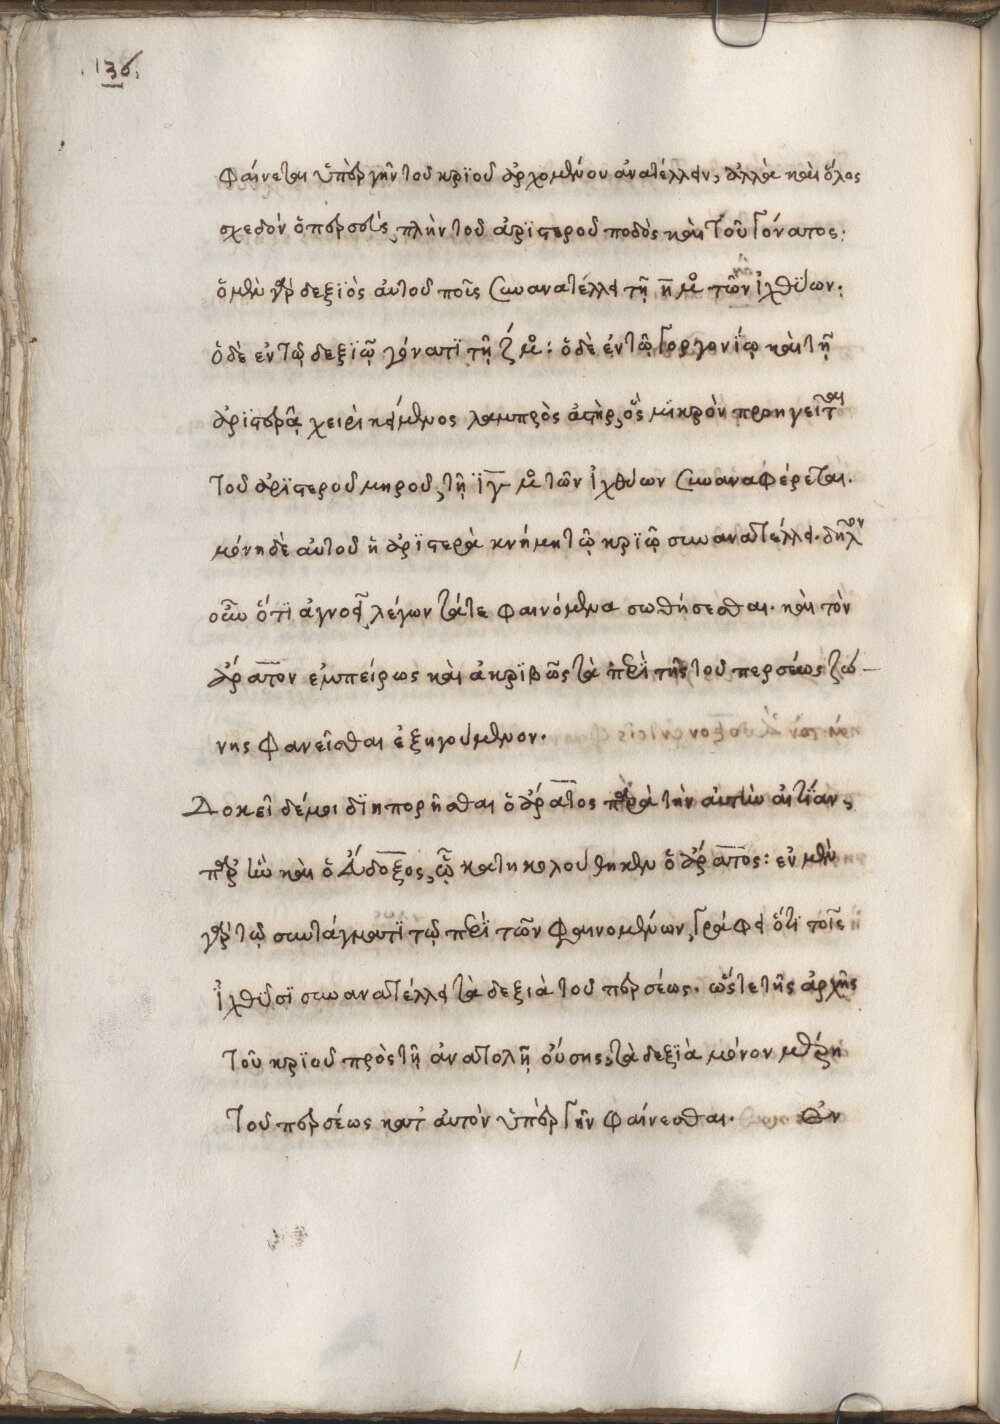 .136.
φαίνεται ὑπὲρ γῆν τοῦ κριοῦ ἀρχομένου ἀνατέλλειν, ἀλλὰ καὶ ὅλος
σχεδὸν ὁ περσεὺς, πλὴν τοῦ ἀρϊστεροῦ ποδὸς καὶ τοῦ γόνατος·
ὁ μὲν γὰρ δεξιὸς αὐτοῦ ποῦς συνανατέλλει τῇ η̄ μοι τῶν ἰχθύων·
ὁ δὲ ἐν τῷ δεξιῷ γόνατϊ τῇ ζ μοι: ὁ δὲ ἐν τῷ γοργονίῳ καὶ τῇ
ἀρϊστερᾷ χειρὶ κείμενος λαμπρὸς ἀστὴρ, ὃς μϊκρὸν προηγεῖται
τοῦ ἀρϊστεροῦ μηροῦ, τῇ ϊγ̄ μοι τῶν ἰχθύων συναναφέρεται.
μόνη δὲ αὐτοῦ ἡ ἀρϊστερὰ κνήμη τῷ κριῷ συνανατέλλει. δῆλον
οὖν ὅτϊ ἀγνοεῖ, λέγων τά τε φαινόμενα σωθήσεσθαι. καὶ τὸν
ἄρατον ἐμπείρως καὶ ἀκριβῶς τὰ περὶ τῆς τοῦ περσέως ζώ-
νης φανεῖσθαι ἐξηγούμενον.
Δοκεῖ δέ μοι δϊηπορῆσθαι ὁ ἄρατος παρὰ τὴν αὐτὴν αἰτίαν,
παρ' ἣν καὶ ὁ Εὔδοξος, ᾧ κατηκολούθηκεν ὁ ἄρατος: ἐν μὲν
γὰρ τῷ συντάγματϊ τῷ περὶ τῶν φαινομένων, γράφει ὅτϊ τοῖς
ἰχθῦσϊ συνανατέλλει τὰ δεξιὰ τοῦ περσέως. ὥστε τῆς ἀρχῆς
τοῦ κριοῦ πρὸς τῇ ἀνατολῇ οὔσης, τὰ δεξϊὰ μόνον μέρη
τοῦ περσέως κατ' αὐτὸν ὑπὲρ γῆν φαίνεσθαι. ἐν